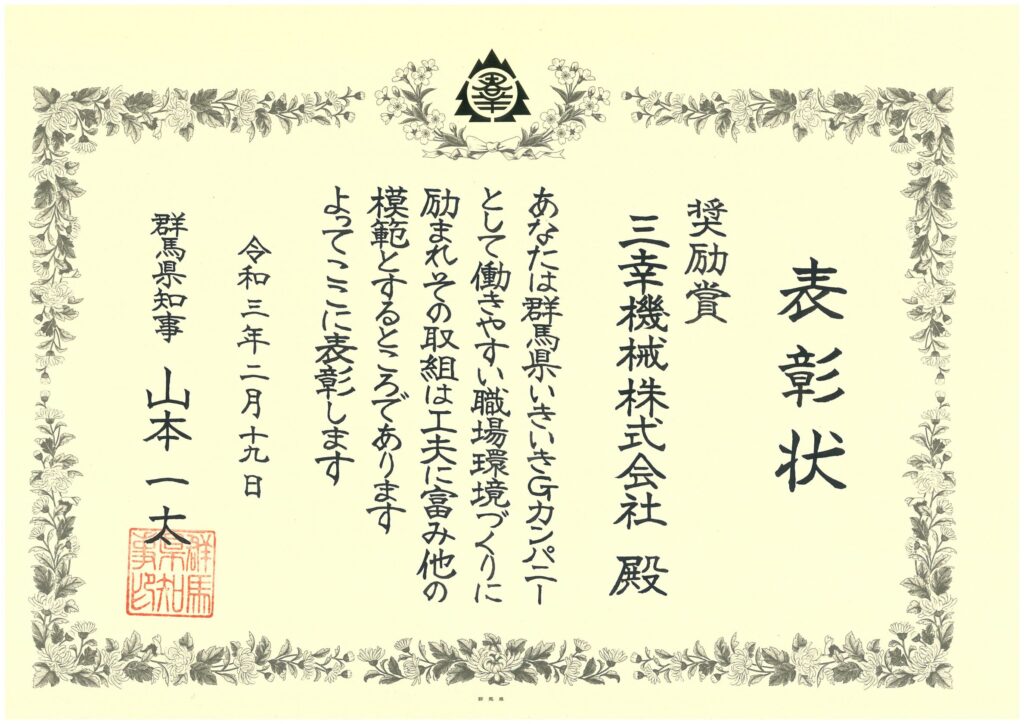 表彰状
奨励賞
三幸機械株式会社 殿
あなたは群馬県いきいきGカンパニー
として働きやすい職場環境づくりに
励まれその取組は工夫に富み他の
模範とするところであります
よってここに表彰します
令和三年二月十九日
群馬県知事 山本一太
群馬県知事印
群馬県